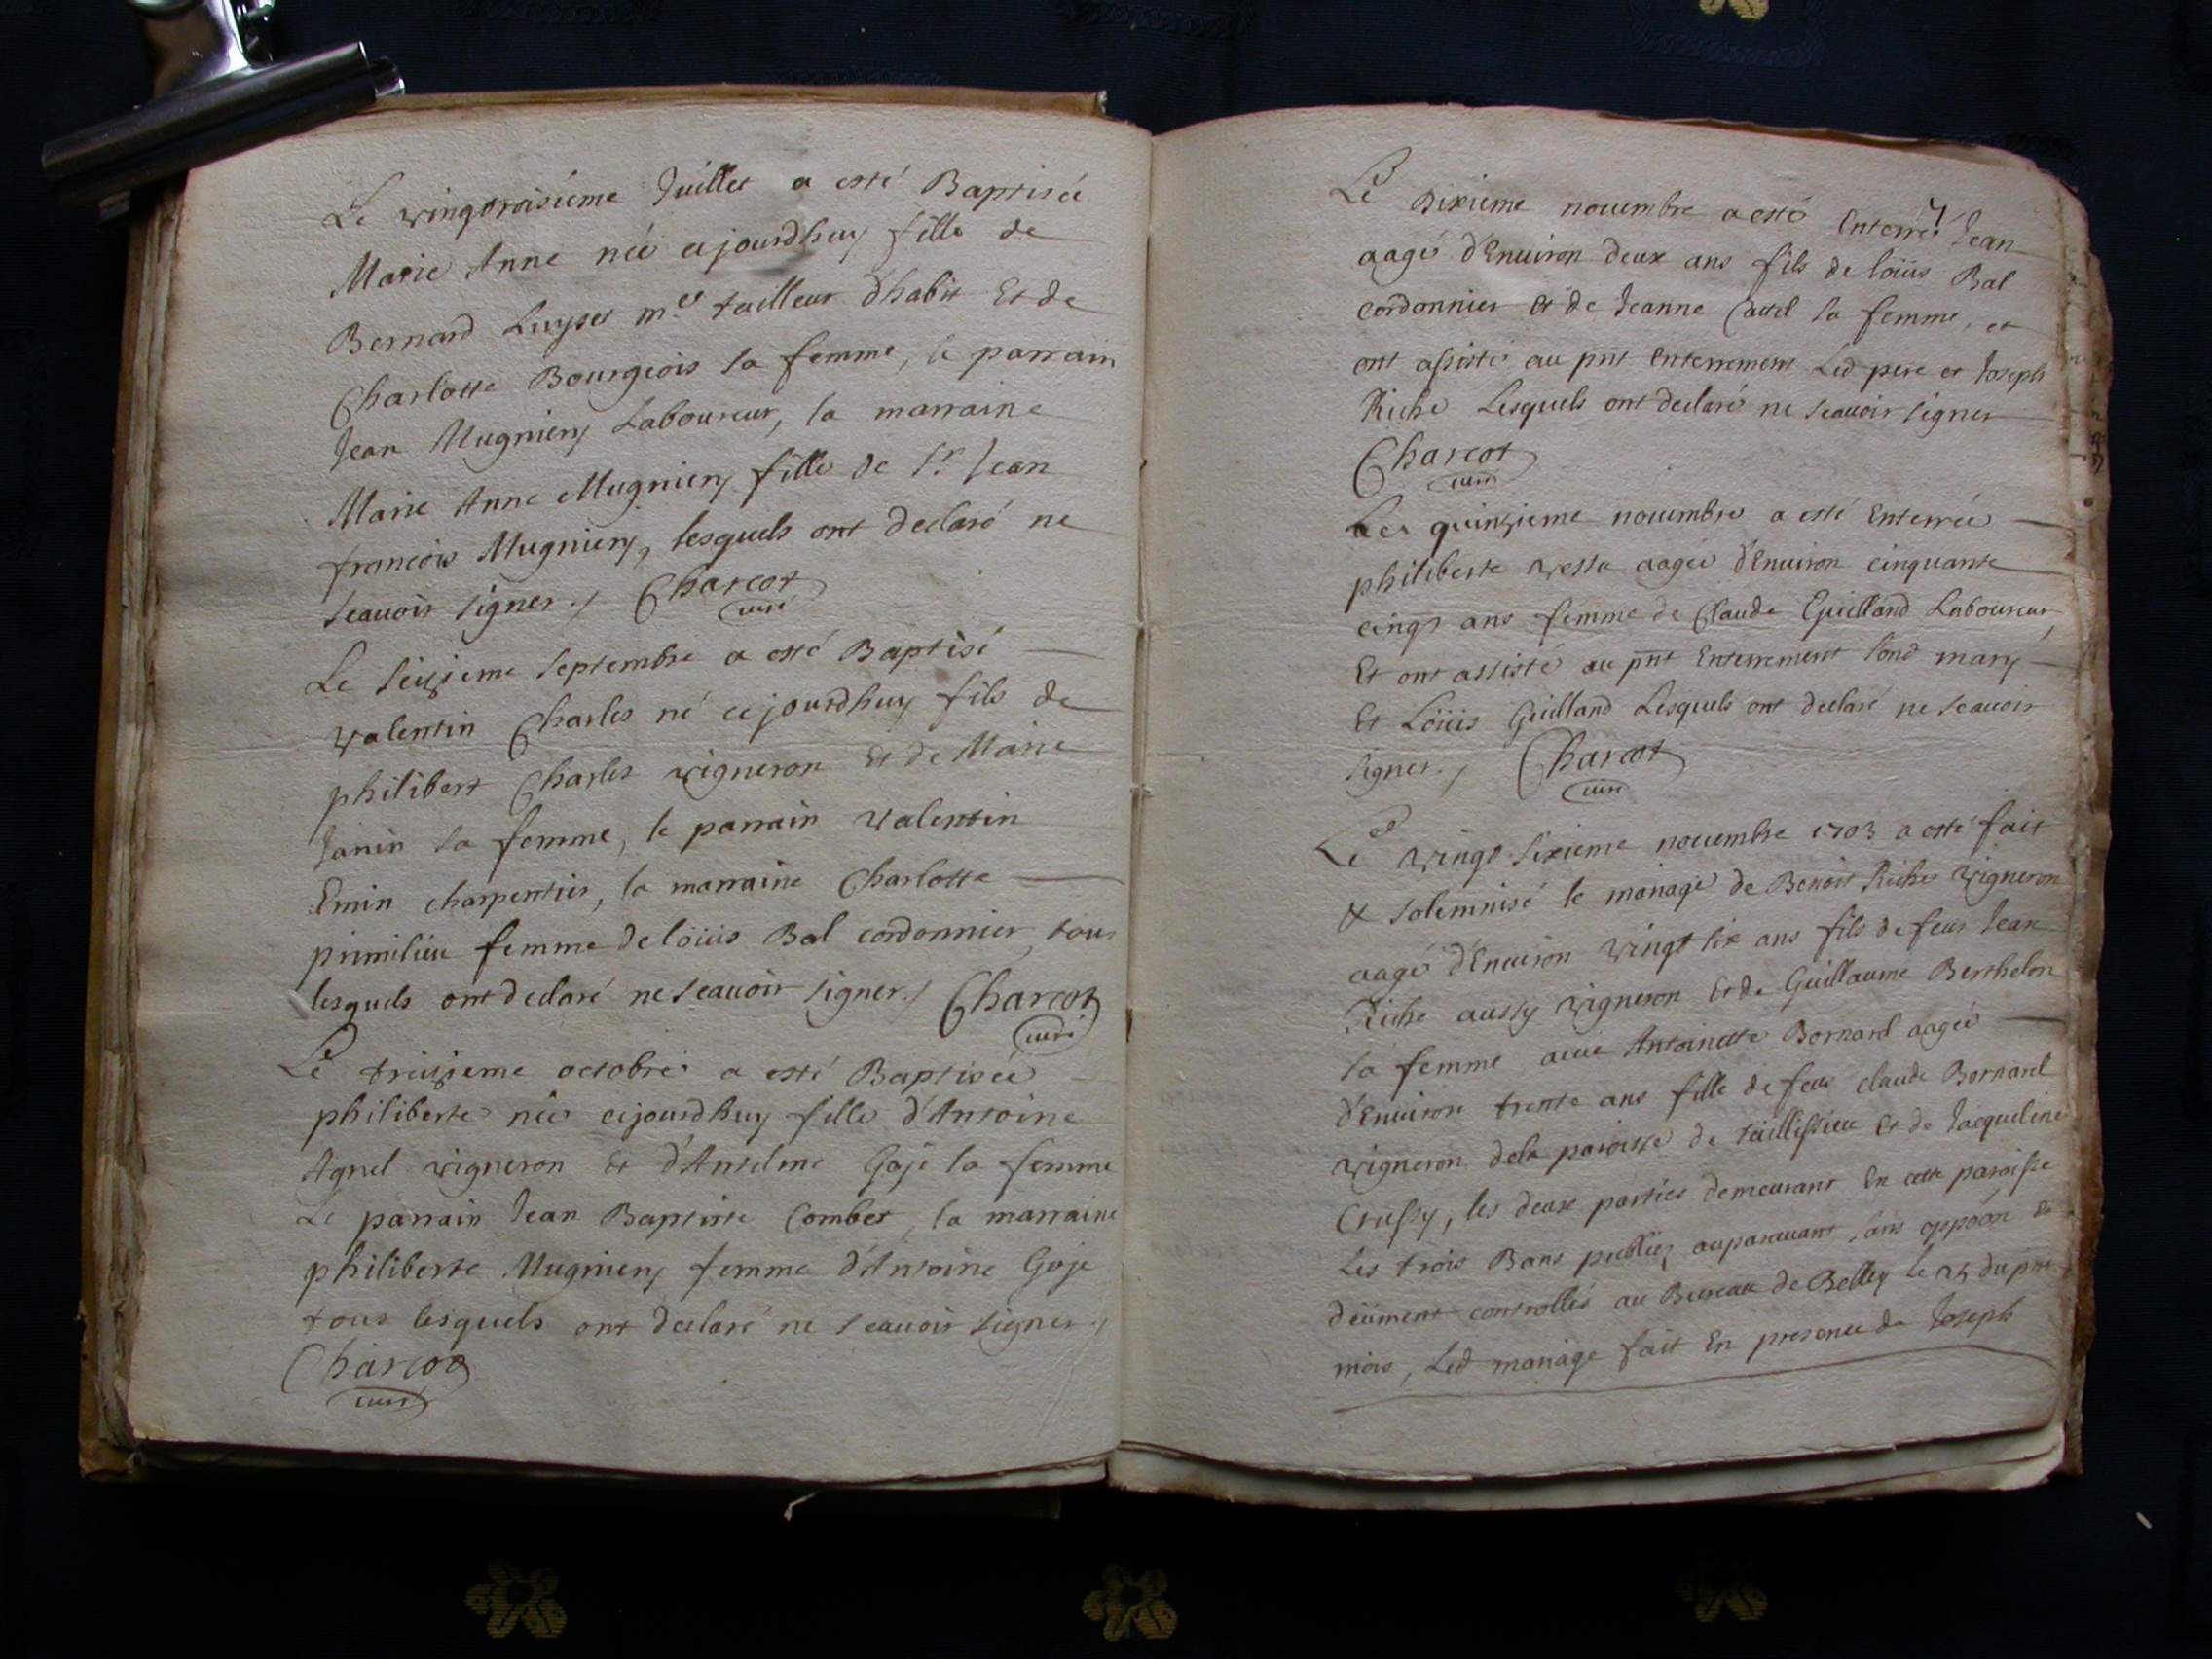 Le vingtroisieme Juillet a esté Baptisée
Marie Anne née cejourdhuy fille de
Bernard Luyset m.e tailleur d'habit Et de
Charlotte Bourgeois sa femme, le parrain
Jean Mugniery Laboureur, la marraine
Marie Anne Mugniery fille de Sr Jean
francois Mugniery, lesquels ont declaré ne
scauoir signer./ Charcot
curé
Le seizieme septembre a esté Baptisé
valentin Charles né cejourdhuy fils de
philibert Charles vigneron Et de Marie
Janin sa femme, le parrain valentin
Emin charpentier, la marraine Charlotte
primilieu femme de loüis Bal cordonnier, tous
lesquels ont declaré ne scauoir signer./ Charcot
curé
Le treizieme octobre a esté Baptisée
philiberte née cejourdhuy fille d'Antoine
Agnel vigneron Et d'Antelme Goje sa femme
Le parrain Jean Baptiste Combet, la marraine
philiberte Mugniery femme d'Antoine Goje
tous lesquels ont declaré ne scauoir signer./
Charcot
curé
7
Le dixieme nouembre a esté Enterré Jean
aagé d'Enuiron deux ans fils de loüis Bal
cordonnier Et de Jeanne sa femme, et
ont assisté au pnt Enterrement Led pere et Joseph
Riche Lesquels ont declaré ne scauoir signer
Charcot
curé
Le quinzieme nouembre a esté Enterrée
philiberte vette aagée d'Enuiron cinquante
cinq ans femme de Claude Guilland Laboureur,
Et ont assisté au pnt Enterrement sond mary
Et Loüis Guilland Lesquels ont declaré ne scauoir
signer./ Charcot
curé
Le vingt sixieme nouembre 1703 a esté fait
& solemnisé le mariage de Benoit Riche vigneron
aagé d'Enuiron vingt six ans fils de feu Jean
Riche aussy vigneron Et de Guillaume Berthelon
sa femme auec Antoinette Bornard aagée
d'Enuiron trente ans fille de feu claude Bornard
vigneron dela paroisse de taillissieu Et de Jacqueline
Crussy, les deux parties demeurant En cette paroisse
Les trois Bans publiez auparauant sans oppoõn Et
deüment controllés au Bureau de Belley le 25 du pnt
mois, Led mariage fait En presence de Joseph